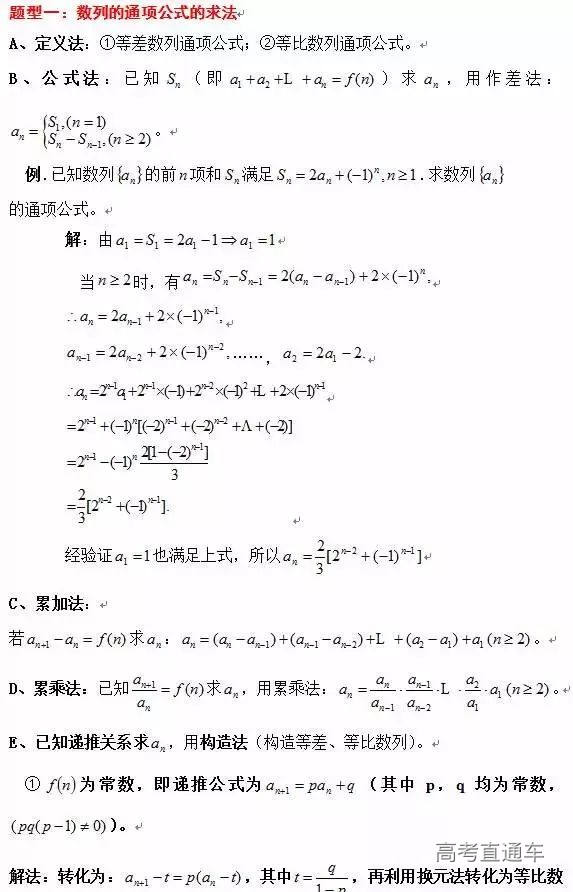 题型一：数列的通项公式的求法↵
A、定义法：①等差数列通项公式；②等比数列通项公式。↵
B、公式法：已知 Sₙ（即 a₁+a₂+L +aₙ = f(n)）求 aₙ，用作差法：
aₙ = {S₁,(n = 1) Sₙ − Sₙ₋₁,(n ≥ 2)。↵
例.已知数列{aₙ}的前n项和Sₙ满足Sₙ = 2aₙ + (−1)ⁿ, n ≥ 1.求数列{aₙ}
的通项公式。↵
解：由a₁ = S₁ = 2a₁ − 1 ⇒ a₁ = 1↵
当n ≥ 2时，有aₙ = Sₙ − Sₙ₋₁ = 2(aₙ − aₙ₋₁) + 2×(−1)ⁿ,↵
∴aₙ = 2aₙ₋₁ + 2×(−1)ⁿ⁻¹,↵
aₙ₋₁ = 2aₙ₋₂ + 2×(−1)ⁿ⁻²,……，a₂ = 2a₁ − 2.↵
∴aₙ = 2ⁿ⁻¹a₁ + 2ⁿ⁻¹×(−1) + 2ⁿ⁻²×(−1)² + L + 2×(−1)ⁿ⁻¹↵
= 2ⁿ⁻¹ + (−1)ⁿ[(−2)ⁿ⁻¹ + (−2)ⁿ⁻² + Λ + (−2)]
= 2ⁿ⁻¹ − (−1)ⁿ 2[1 − (−2)ⁿ⁻¹]/3
= 2/3[2ⁿ⁻² + (−1)ⁿ⁻¹].↵
经验证a₁ = 1也满足上式，所以aₙ = 2/3[2ⁿ⁻² + (−1)ⁿ⁻¹]↵
C、累加法：↵
若aₙ₊₁ − aₙ = f(n)求aₙ：aₙ = (aₙ − aₙ₋₁) + (aₙ₋₁ − aₙ₋₂) + L + (a₂ − a₁) + a₁ (n ≥ 2)。↵
D、累乘法：已知aₙ₊₁/aₙ = f(n)求aₙ，用累乘法：aₙ = aₙ/aₙ₋₁ · aₙ₋₁/aₙ₋₂ · L · a₂/a₁ · a₁ (n ≥ 2)。↵
E、已知递推关系求aₙ，用构造法（构造等差、等比数列）。↵
① f(n)为常数，即递推公式为aₙ₊₁ = paₙ + q（其中 p，q 均为常数，
(pq(p − 1) ≠ 0)）。↵
高考直通车
解法：转化为：aₙ₊₁ − t = p(aₙ − t)，其中t = q/1−p，再利用换元法转化为等比数